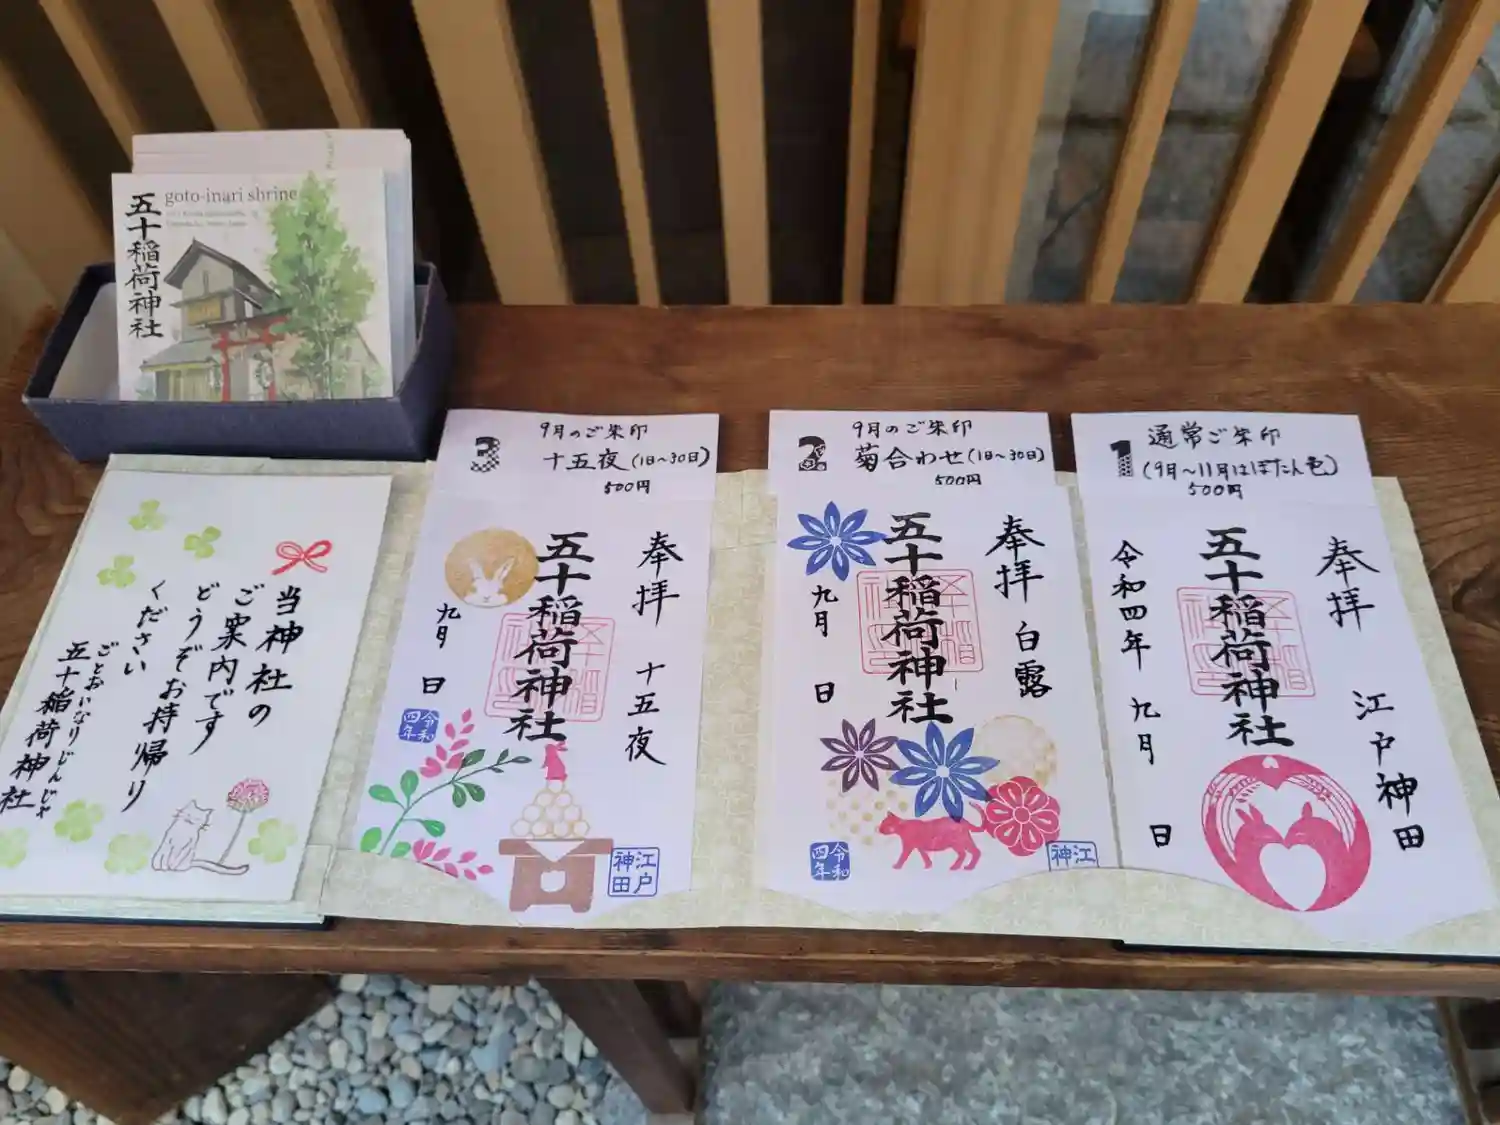 goto-inari shrine
五十稲荷神社
当神社の
ご案内です
どうぞお持帰り
ください
ごとおいなりじんじゃ
五十稲荷神社
3
9月のご朱印
十五夜(1日~30日)
500円
奉拝
十五夜
五十稲荷神社
九月
日
令和
四年
江戸
神田
2
9月のご朱印
菊合わせ(1日~30日)
500円
奉拝
白露
五十稲荷神社
九月
日
令和
四年
江
神
1
通常ご朱印
(9月~11月はぼたん色)
500円
奉拝
江戸神田
五十稲荷神社
令和四年
九月
日